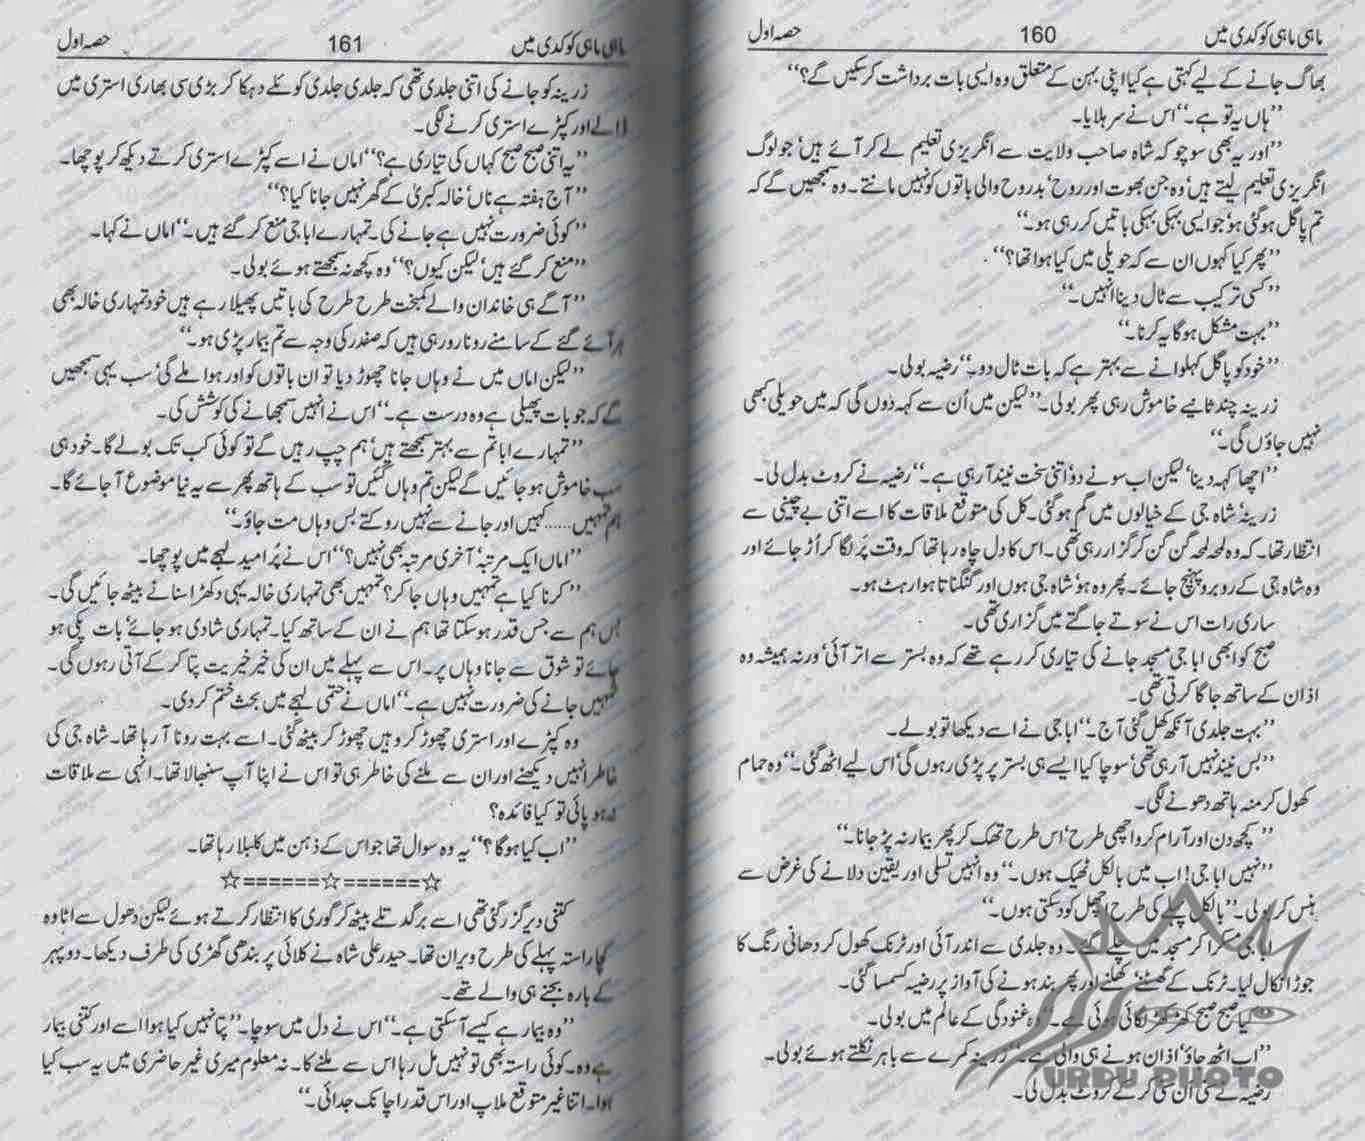 ماہی ماہی کوکدی میں 160 حصہ اول
بھاگ جانے کے لیے کہتی ہے کیا اپنی بہن کے متعلق وہ ایسی بات برداشت کر سکیں گے؟‘‘
’’ہاں یہ تو ہے۔‘‘ اس نے سر ہلایا۔
’’اور یہ بھی سوچو کہ شاہ صاحب ولایت سے انگریزی تعلیم لے کر آئے ہیں‘ جو لوگ
انگریزی تعلیم لیتے ہیں‘ وہ جن بھوت اور روح‘ بدروح والی باتوں کو نہیں مانتے۔ وہ سمجھیں گے کہ
تم پاگل ہو گئی ہو‘ جو ایسی بہکی بہکی باتیں کر رہی ہو۔‘‘
’’پھر کیا کہوں ان سے کہ حویلی میں کیا ہوا تھا؟‘‘
’’کسی ترکیب سے ٹال دینا انہیں۔‘‘
’’بہت مشکل ہوگا یہ کرنا۔‘‘
’’خود کو پاگل کہلوانے سے بہتر ہے کہ بات ٹال دو۔‘‘ رضیہ بولی۔
زرینہ چند ثانیے خاموش رہی پھر بولی۔ ’’لیکن میں اُن سے کہہ دوں گی کہ میں حویلی کبھی
نہیں جاؤں گی۔‘‘
’’اچھا کہہ دینا‘ لیکن اب سونے دو‘ اتنی سخت نیند آ رہی ہے۔‘‘ رضیہ نے کروٹ بدل لی۔
زرینہ‘ شاہ جی کے خیالوں میں گم ہو گئی۔ کل کی متوقع ملاقات کا اسے اتنی بے چینی سے
انتظار تھا۔ کہ وہ لمحہ لمحہ گن گن کر گزار رہی تھی۔ اس کا دل چاہ رہا تھا کہ وقت پَر لگا کر اُڑ جائے اور
وہ شاہ جی کے روبرو پہنچ جائے۔ پھر وہ ہو‘ شاہ جی ہوں اور گنگناتا ہوا رہٹ ہو۔
ساری رات اس نے سوتے جاگتے میں گزاری تھی۔
صبح کو ابھی ابا جی مسجد جانے کی تیاری کر رہے تھے کہ وہ بستر سے اتر آئی‘ ورنہ ہمیشہ وہ
اذان کے ساتھ جاگا کرتی تھی۔
’’بہت جلدی آنکھ کھل گئی آج۔‘‘ ابا جی نے اسے دیکھا تو بولے۔
’’بس نیند نہیں آ رہی تھی‘ سوچا کیا ایسے ہی بستر پر پڑی رہوں گی‘ اس لیے اٹھ گئی۔‘‘ وہ حمام
کھول کر منہ ہاتھ دھونے لگی۔
’’کچھ دن اور آرام کرو اچھی طرح‘ اس طرح تھک کر پھر بیمار نہ پڑ جانا۔‘‘
’’نہیں ابا جی! اب میں بالکل ٹھیک ہوں۔‘‘ وہ انہیں تسلی اور یقین دلانے کی غرض سے
ہنس کر بولی۔ ’’بالکل پہلے کی طرح اچھل کود سکتی ہوں۔‘‘
ابا جی مسکرا کر مسجد میں چلے گئے۔ وہ جلدی سے اندر آئی اور ٹرنک کھول کر دھانی رنگ کا
جوڑا نکال لیا۔ ٹرنک کے گھسٹنے‘ کھلنے اور پھر بند ہونے کی آواز پر رضیہ کسمسا گئی۔
’’کیا صبح صبح کھڑ کھڑ لگائی ہوئی ہے۔‘‘ وہ غنودگی کے عالم میں بولی۔
’’اب اٹھ جاؤ‘ اذان ہونے ہی والی ہے۔‘‘ زرینہ کمرے سے باہر نکلتے ہوئے بولی۔
رضیہ نے سنی ان سنی کر کے کروٹ بدل لی۔
URDU PHOTO
ماہی ماہی کوکدی میں 161 حصہ اول
زرینہ کو جانے کی اتنی جلدی تھی کہ جلدی جلدی کوئلے دہکا کر بڑی سی بھاری استری میں
ڈالے اور کپڑے استری کرنے لگی۔
’’یہ اتنی صبح صبح کہاں کی تیاری ہے؟‘‘ اماں نے اسے کپڑے استری کرتے دیکھ کر پوچھا۔
’’آج ہفتہ ہے ناں‘ خالہ کبریٰ کے گھر نہیں جانا کیا؟‘‘
’’کوئی ضرورت نہیں ہے جانے کی۔ تمہارے ابا جی منع کر گئے ہیں۔‘‘ اماں نے کہا۔
’’منع کر گئے ہیں‘ لیکن کیوں؟‘‘ وہ کچھ نہ سمجھتے ہوئے بولی۔
’’آگے ہی خاندان والے کمبخت طرح طرح کی باتیں پھیلا رہے ہیں خود تمہاری خالہ بھی
ہر آئے گئے کے سامنے رونا رو رہی ہیں کہ صفدر کی وجہ سے تم بیمار پڑی ہو۔‘‘
’’لیکن اماں میں نے وہاں جانا چھوڑ دیا تو ان باتوں کو اور ہوا ملے گی‘ سب یہی سمجھیں
گے کہ جو بات پھیلی ہے وہ درست ہے۔‘‘ اس نے انہیں سمجھانے کی کوشش کی۔
’’تمہارے ابا تم سے بہتر سمجھتے ہیں‘ ہم چپ رہیں گے تو کوئی کب تک بولے گا۔ خود ہی
سب خاموش ہو جائیں گے لیکن تم وہاں گئیں تو سب کے ہاتھ پھر سے یہ نیا موضوع آ جائے گا۔
ہم تمہیں......کہیں اور جانے سے نہیں روکتے بس وہاں مت جاؤ۔‘‘
’’اماں ایک مرتبہ‘ آخری مرتبہ بھی نہیں؟‘‘ اس نے پُرامید لہجے میں پوچھا۔
’’کرنا کیا ہے تمہیں وہاں جا کر؟ تمہیں بھی تمہاری خالہ یہی دکھڑا سنانے بیٹھ جائیں گی۔
بس ہم سے جس قدر ہو سکتا تھا ہم نے ان کے ساتھ کیا۔ تمہاری شادی ہو جائے‘ بات پکی ہو
جائے تو شوق سے جانا وہاں پر۔ اس سے پہلے میں ان کی خیر خیریت پتا کر کے آتی رہوں گی۔
تمہیں جانے کی ضرورت نہیں ہے۔‘‘ اماں نے حتمی لہجے میں بحث ختم کر دی۔
وہ کپڑے اور استری چھوڑ کر وہیں چھوڑ کر بیٹھ گئی۔ اسے بہت رونا آ رہا تھا۔ شاہ جی کی
خاطر انہیں دیکھنے اور ان سے ملنے کی خاطر ہی تو اس نے اپنا آپ سنبھالا تھا۔ انہی سے ملاقات
نہ ہو پائی تو کیا فائدہ؟
’’اب کیا ہوگا؟‘‘ یہ وہ سوال تھا جو اس کے ذہن میں کلبلا رہا تھا۔
☆======☆======☆
کتنی دیر گزر گئی تھی اسے برگد تلے بیٹھ کر گوری کا انتظار کرتے ہوئے لیکن دھول سے اٹا وہ
کچا راستہ پہلے کی طرح ویران تھا۔ حیدر علی شاہ نے کلائی پر بندھی گھڑی کی طرف دیکھا۔ دوپہر
کے بارہ بجنے ہی والے تھے۔
’’وہ بیمار ہے کیسے آ سکتی ہے۔‘‘ اس نے دل میں سوچا۔ ’’پتا نہیں کیا ہوا اسے اور کتنی بیمار
ہے وہ۔ کوئی راستہ بھی تو نہیں مل رہا اس سے ملنے کا۔ نہ معلوم میری غیر حاضری میں یہ سب کیا
ہوا۔ اتنا غیر متوقع ملاپ اور اس قدر اچانک جدائی۔‘‘